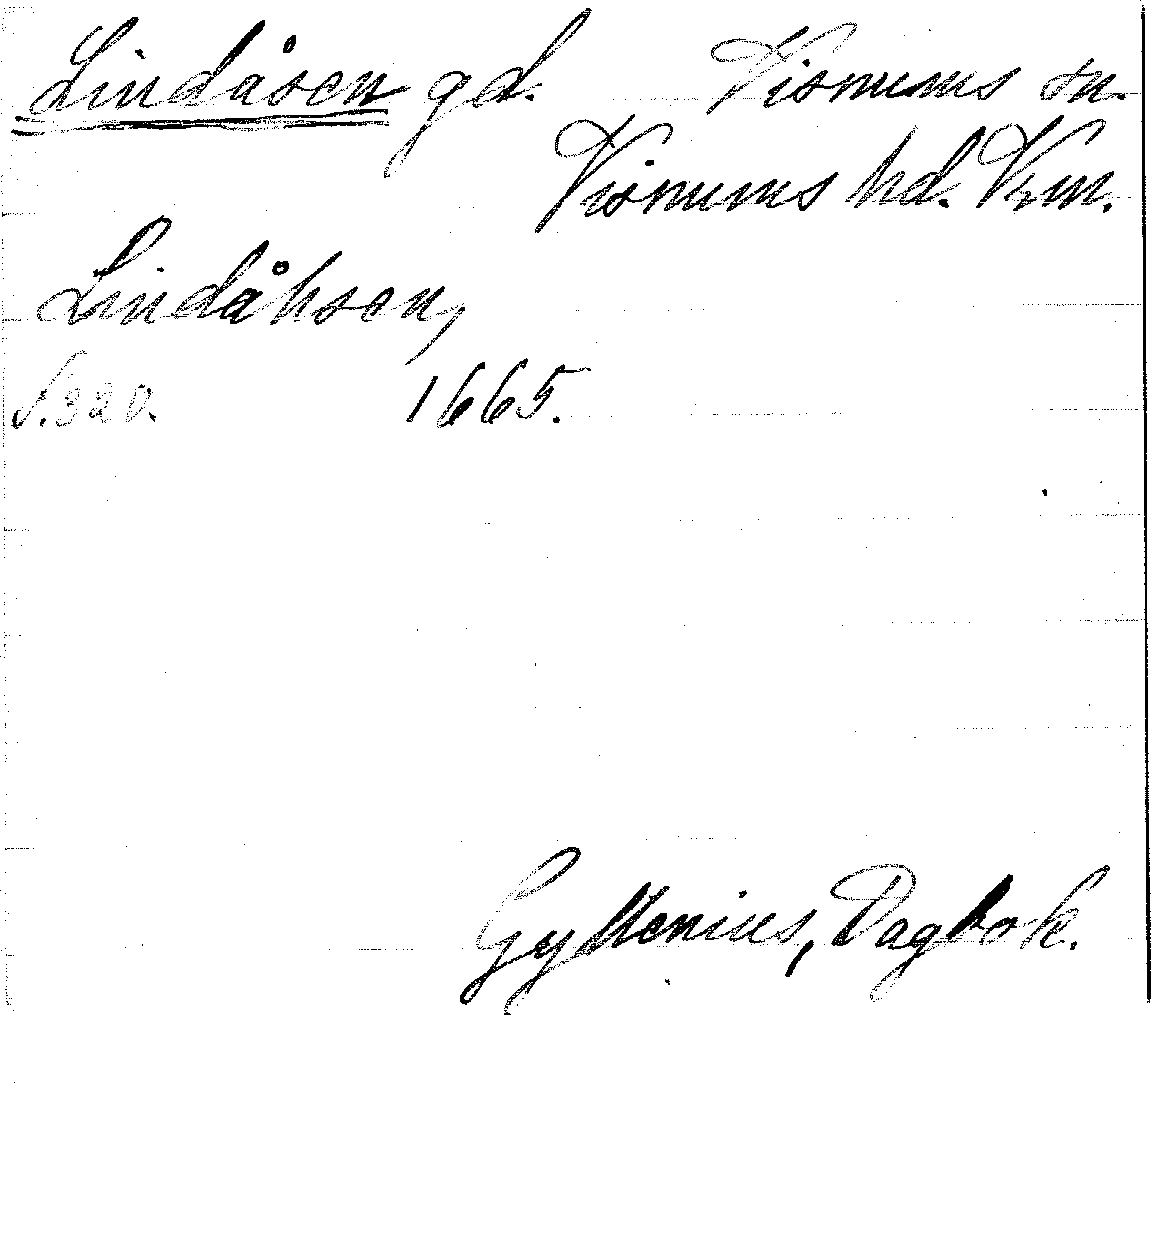 Lindåsen gd. Visnums sn.
Visnums hd. Vrm.
Lindåhsen,
S. 320. 1665.
Gyllenius, Dagbok.